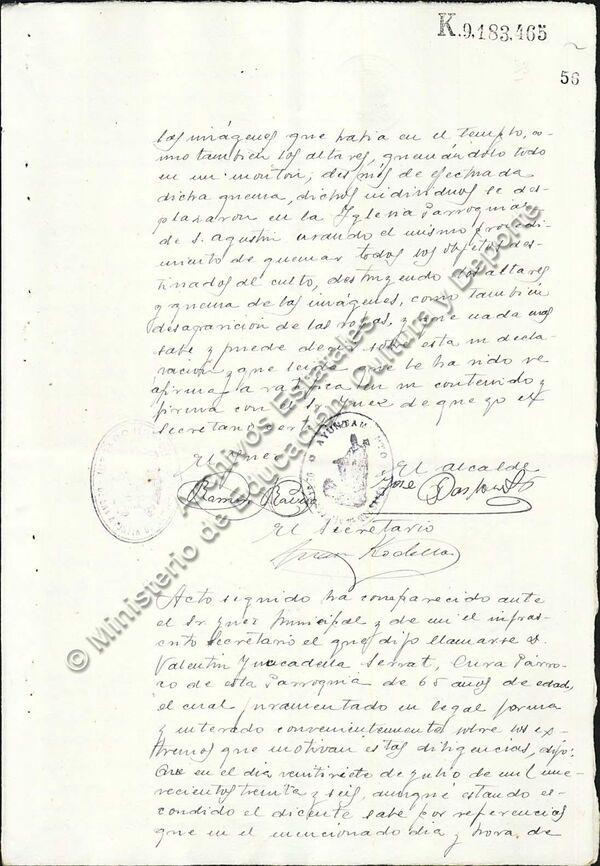 K.9.183.465
56
las imágenes que habia en el templo, co-
mo también los altares, quemándolo todo
en un montón; después de efectuada
dicha quema, dichos individuos se des-
plazaron en la Yglesia Parroquial
de S. Agustín usando el mismo procedi-
miento de quemar todos los objetos des-
tinados al culto, destruyendo los altares
y quema de las imágenes, como también
desaparición de las ropas, y que nada mas
sabe y puede decir sobre esta su decla-
ración y que leida que le ha sido se
afirma y ratifica en su contenido y
firma con el Sr. Juez de que yo el
Secretario certifico
El Juez
El Alcalde
Ramon
José
AYUNTAMIENTO
El Secretario
Juan Rodella
Acto seguido ha comparecido ante
el Sr Juez Municipal y de mi el infras-
crito Secretario el que dijo llamarse D.
Valentin Serrat, Cura Párro-
co de esta Parroquia de 65 años de edad,
el cual juramentado en legal forma
y enterado convenientemente sobre los ex-
tremos que motivan estas diligencias, dijo:
Que en el dia veintisiete de julio de mil nue-
vecientos treinta y seis, aunque estando es-
condido el dicente sabe por referencias
que en el mencionado dia y hora de
© Ministerio de Educación, Cultura y Deporte
Archivos Estatales